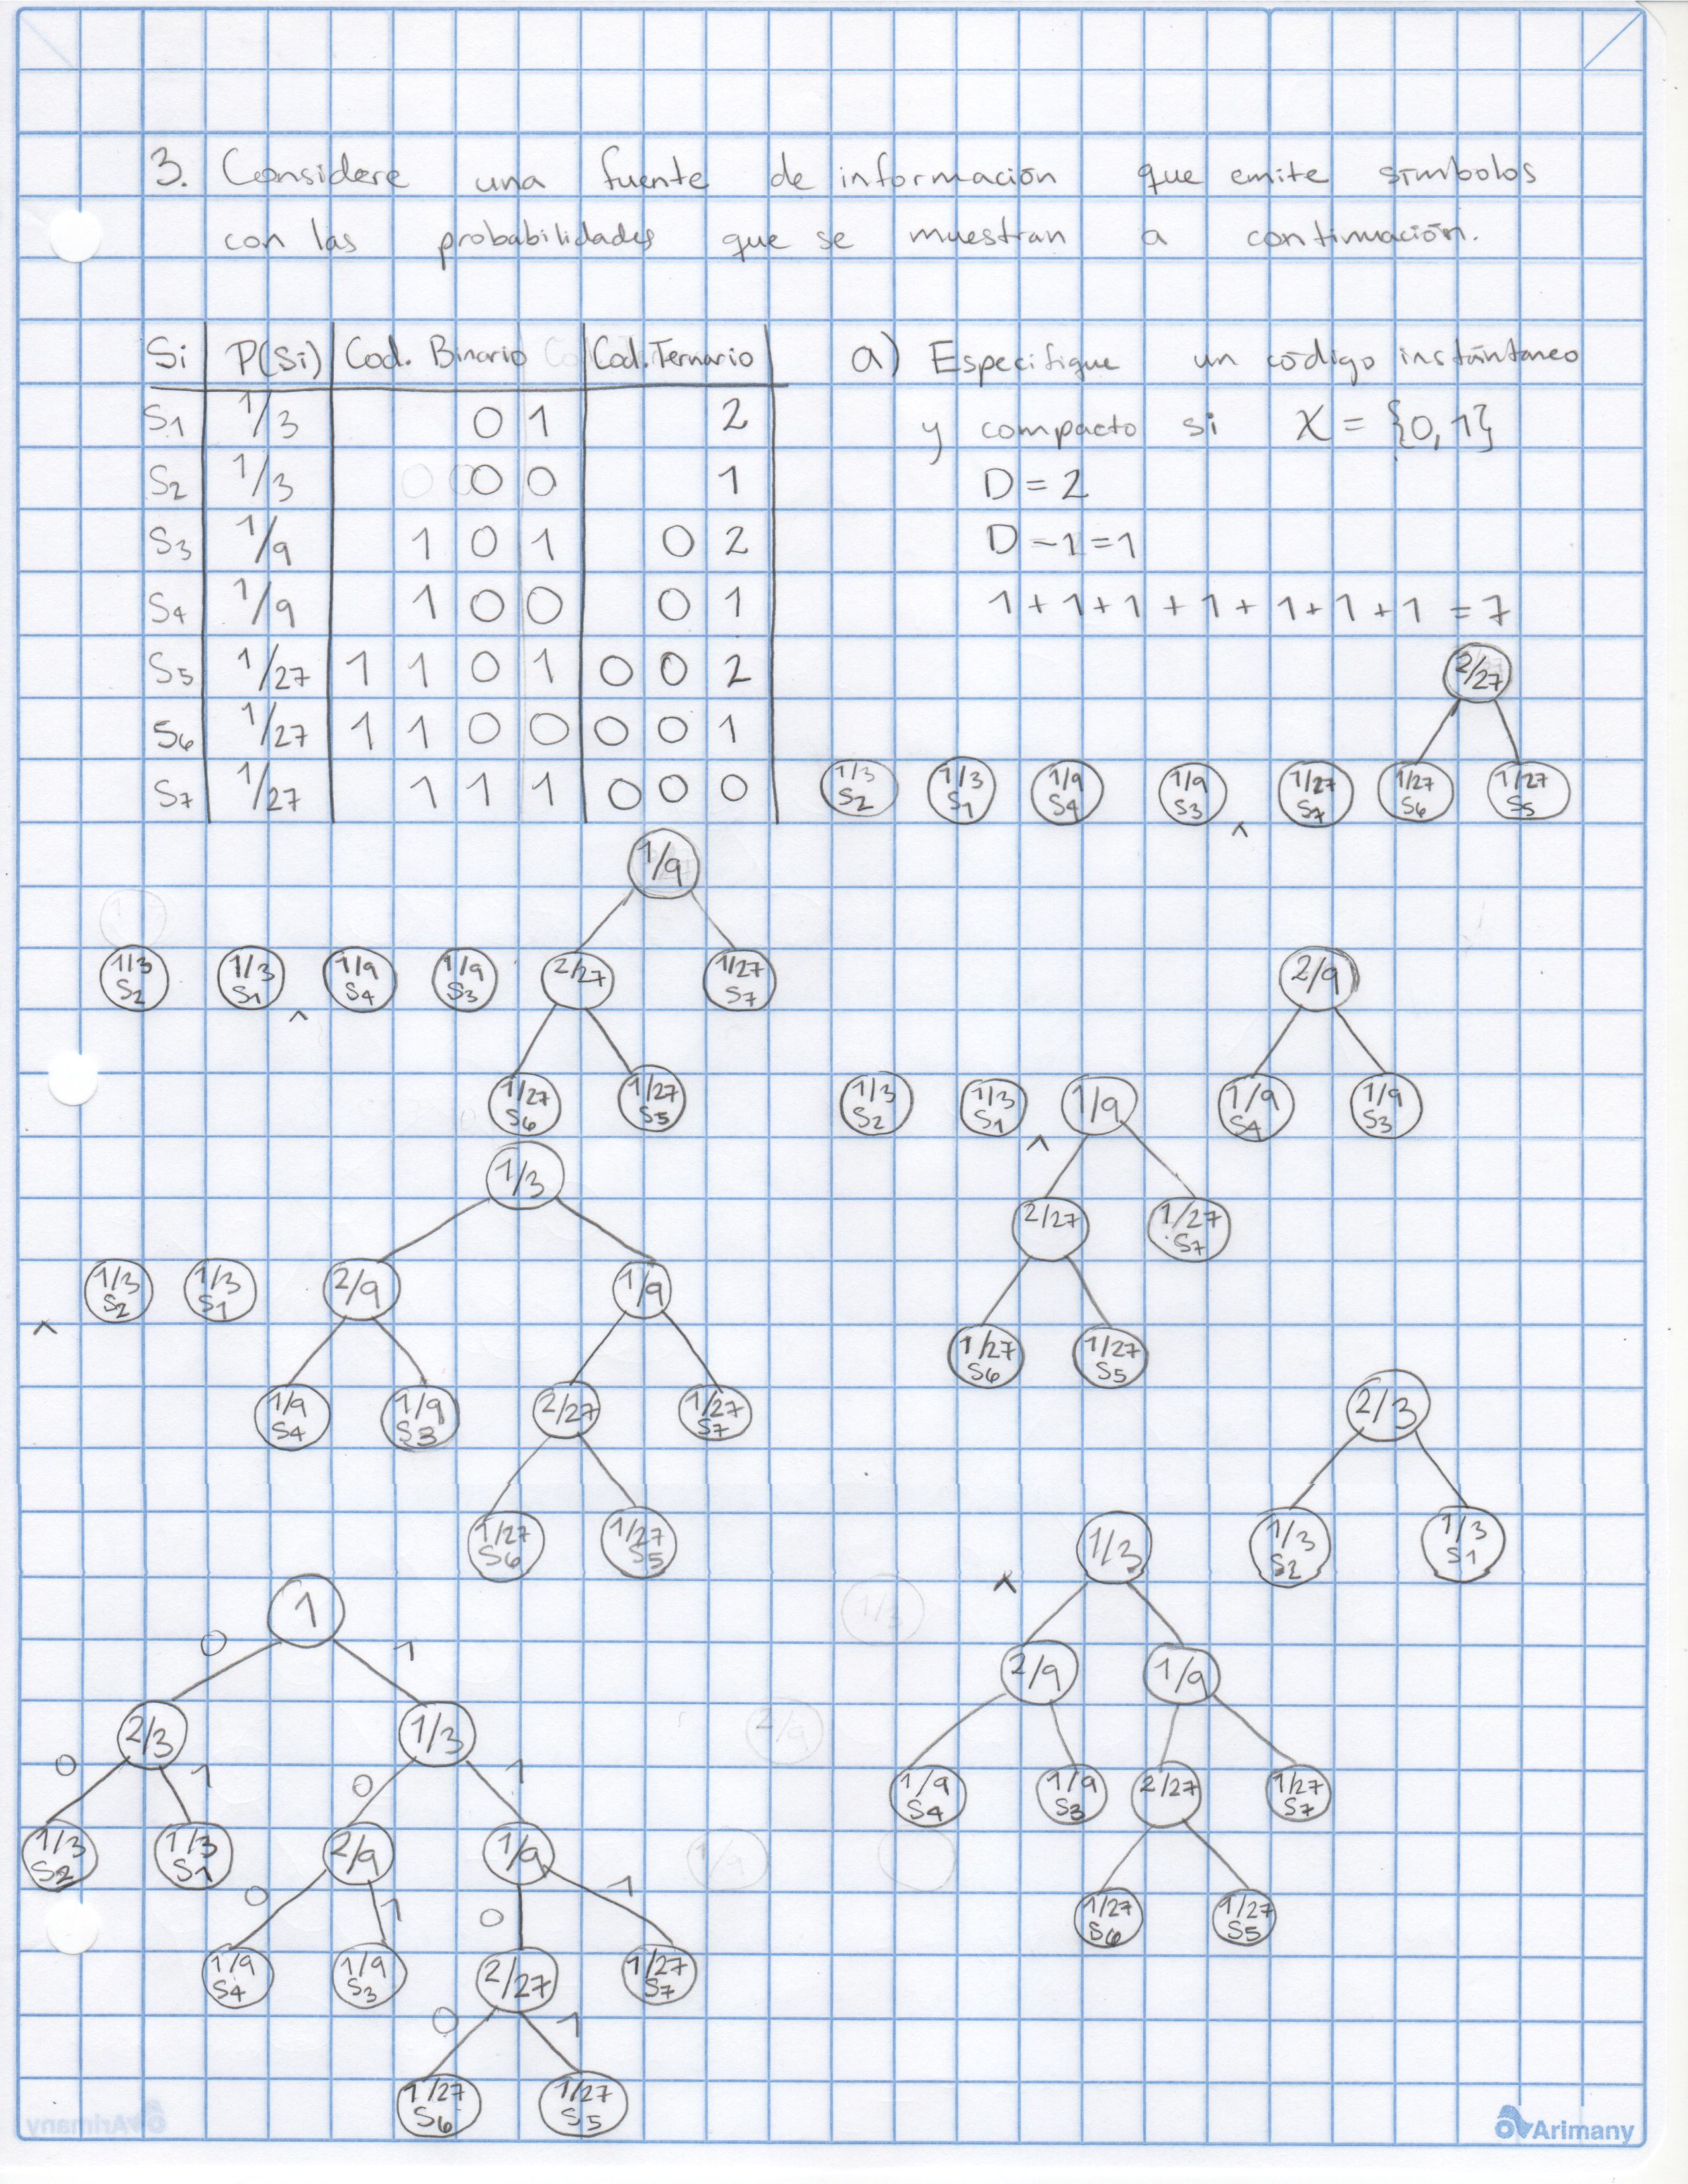 3. Considere una fuente de información que emite símbolos
con las probabilidades que se muestran a continuación.
Si P(Si) Cod. Binario Cod. Ternario
S1 1/3 0 1 2
S2 1/3 0 0 1
S3 1/9 1 0 1 0 2
S4 1/9 1 0 0 0 1
S5 1/27 1 1 0 1 0 0 2
S6 1/27 1 1 0 0 0 0 1
S7 1/27 1 1 1 0 0 0
a) Especifique un código instántaneo
y compacto si X = {0,1}
D = 2
D - 1 = 1
1 + 1 + 1 + 1 + 1 + 1 + 1 = 7
2/27
1/3 S2 1/3 S1 1/9 S4 1/9 S3 ^ 1/27 S7 1/27 S6 1/27 S5
1/9
1/3 S2 1/3 S1 ^ 1/9 S4 1/9 S3 2/27 1/27 S7
1/27 S6 1/27 S5
2/9
1/3 S2 1/3 S1 ^ 1/9 1/9 S4 1/9 S3
2/27 1/27 S7
1/27 S6 1/27 S5
1/3
^ 1/3 S2 1/3 S1 2/9 1/9
1/9 S4 1/9 S3 2/27 1/27 S7
1/27 S6 1/27 S5
2/3
^ 1/3 1/3 S2 1/3 S1
2/9 1/9
1/9 S4 1/9 S3 2/27 1/27 S7
1/27 S6 1/27 S5
1
0 1
2/3 1/3
0 1 0 1
1/3 S2 1/3 S1 2/9 1/9
0 1 0 1
1/9 S4 1/9 S3 2/27 1/27 S7
0 1
1/27 S6 1/27 S5
Arimany